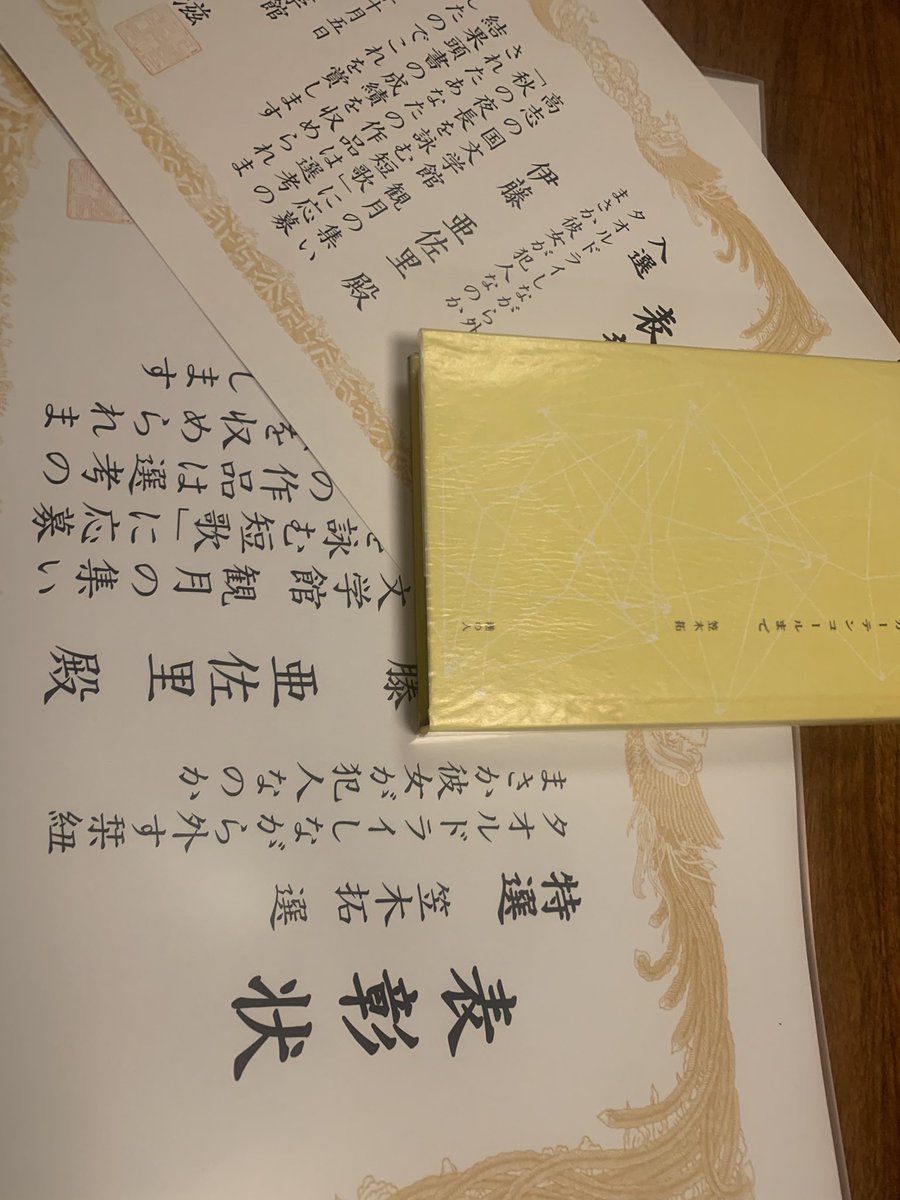 入選
タオルドライしながら外
まさか彼女が犯人なのか
伊藤 亜佐里 殿
高志の国文学館 観月の集い
「秋の夜長を詠む短歌」に応募
されたあなたの作品は選考の
結果頭書の成績を収められま
したのでこれを賞します
十月五日
館
滋
カーテンコールまで
笠木拓
港の人
表彰状
特選 笠木拓 選
タオルドライしながら外す栞紐
まさか彼女が犯人なのか
藤 亜佐里 殿
文学館 観月の集い
を詠む短歌」に応募
の作品は選考の
を収められま
します